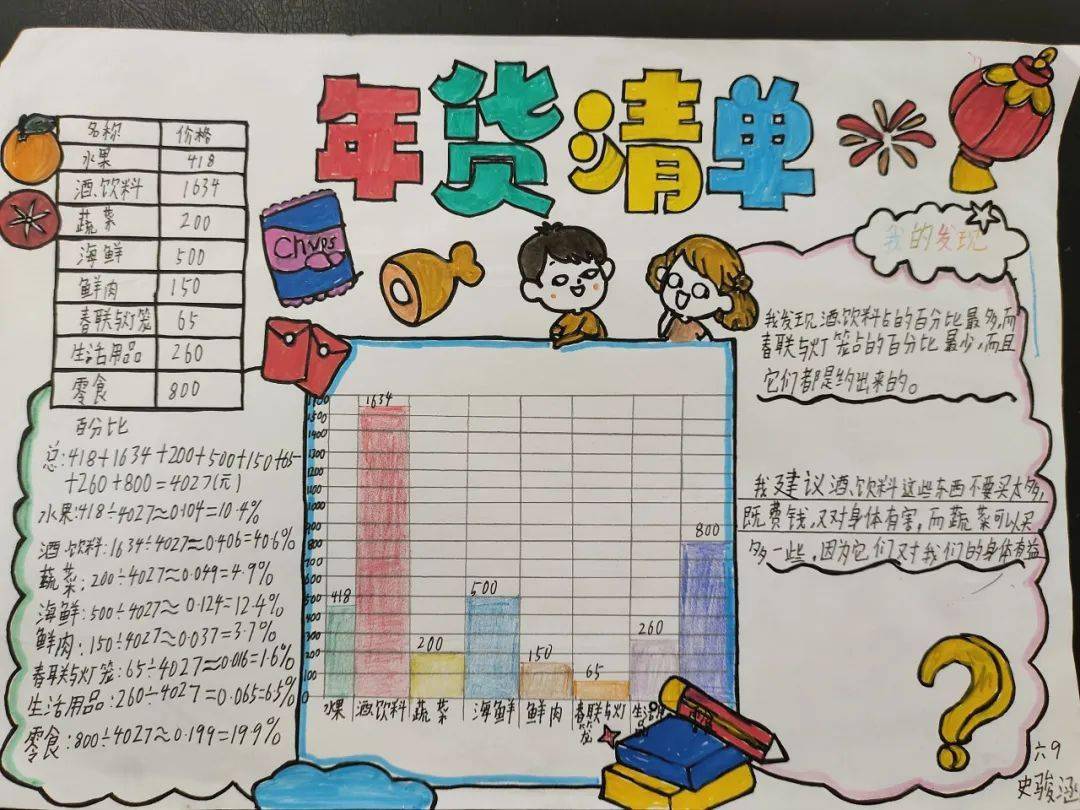 年货清单
名称 价格
水果 418
酒、饮料 1634
蔬菜 200
海鲜 500
鲜肉 150
春联与灯笼 65
生活用品 260
零食 800
Chvps
百分比
总:418+1634+200+500+150+65
+260+800=4027(元)
水果:418÷4027≈0.104=10.4%
酒、饮料:1634÷4027≈0.406=40.6%
蔬菜:200÷4027≈0.049=4.9%
海鲜:500÷4027≈0.124=12.4%
鲜肉:150÷4027≈0.037=3.7%
春联与灯笼:65÷4027≈0.016=1.6%
生活用品:260÷4027≈0.065=6.5%
零食:800÷4027≈0.199=19.9%
1500
1400
1300
1200
1100
1000
900
800
700
600
500
400
300
200
100
0
418
1634
200
500
150
65
260
800
水果 酒、饮料 蔬菜 海鲜 鲜肉 春联与灯笼
我的发现
我发现酒、饮料占的百分比最多,而
春联与灯笼占的百分比最少,而且
它们都是约出来的。
我建议酒、饮料这些东西不要买太多,
既费钱,又对身体有害,而蔬菜可以买
多一些,因为它们又对我们的身体有益
六9
史骏涵